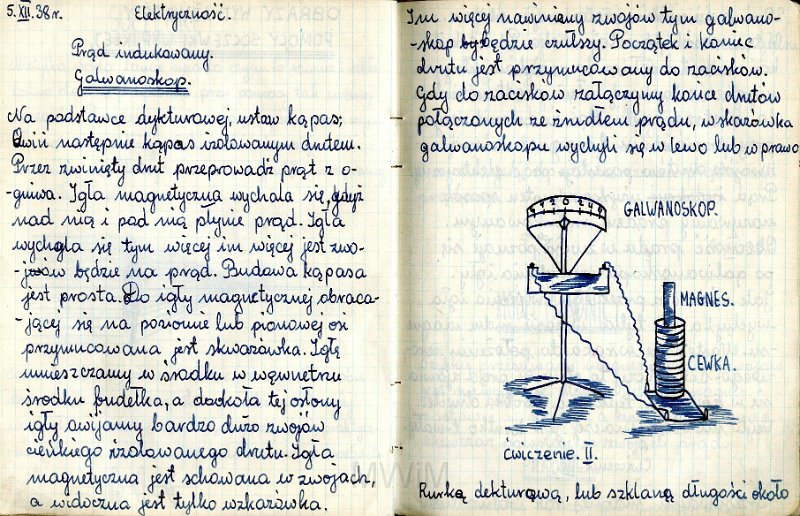 5.XII.38r. Elektryczność.
Prąd indukowany.
Galwanoskop.
Na podstawce dykturowej, ustaw kąpas;
Owiń następnie kąpas izolowanym drutem.
Przez zwinięty drut przeprowadź prąt z o-
-gniwa. Igła magnetyczna wychala się, gdyż
nad nią i pod nią płynie prąd. Igła
wychyla się tym więcej im więcej jest zwo-
-jów będzie na prąd. Budawa kąpasa
jest prosta. Do igły magnetycznej obraca-
-jącej się na poziomie lub pionowej osi
przymucowana jest skwazówka. Igłę
umieszczamy w środku w węwnętrzu
środku pudełka, a dackoła tej osłony
igły owijamy bardzo dużo zwojów
cieńkiego izolowanego drutu. Igła
magnetyczna jest schowana w zwojach,
a widoczna jest tylko wzkazówka.
Im więcej nawiniemy zwojów tym galwano-
-skop będzie czulszy. Początek i koniec
drutu jest przymucowany do zacisków.
Gdy do zacisków załączymy końce drutów
połączonych ze źródłem prądu, wskazówka
galwanoskopu wychyli się w lewo lub w prawo
4 2 0 2 4
GALWANOSKOP.
MAGNES.
CEWKA.
Ćwiczenie. II.
MWiM
Rurką dekturową, lub szklaną długości około